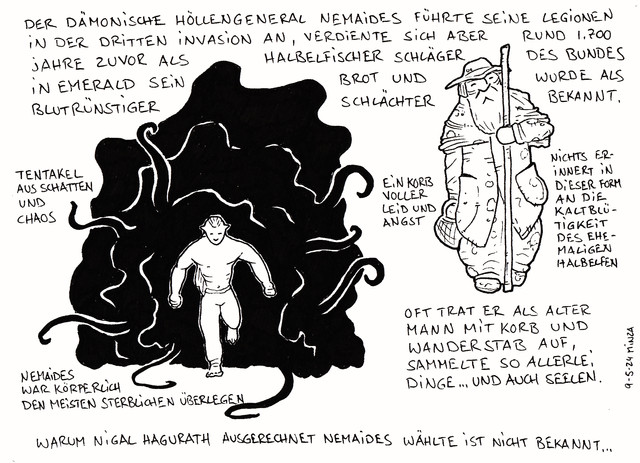 DER DÄMONISCHE HÖLLENGENERAL NEMAIDES FÜHRTE SEINE LEGIONEN
IN DER DRITTEN INVASION AN, VERDIENTE SICH ABER RUND 1.700
JAHRE ZUVOR ALS HALBELFISCHER SCHLÄGER DES BUNDES
IN EMERALD SEIN BROT UND WURDE ALS
BLUTRÜNSTIGER SCHLÄCHTER BEKANNT.
TENTAKEL
AUS SCHATTEN
UND
CHAOS
EIN KORB
VOLLER
LEID UND
ANGST
NICHTS ER-
INNERT IN
DIESER FORM
AN DIE
KALTBLÜ-
TIGKEIT
DES EHE-
MALIGEN
HALBELFEN
NEMAIDES
WAR KÖRPERLICH
DEN MEISTEN STERBLICHEN ÜBERLEGEN
OFT TRAT ER ALS ALTER
MANN MIT KORB UND
WANDERSTAB AUF,
SAMMELTE SO ALLERLEI
DINGE... UND AUCH SEELEN.
9-5-24 MINZA
WARUM NIGAL HAGURATH AUSGERECHNET NEMAIDES WÄHLTE IST NICHT BEKANNT...